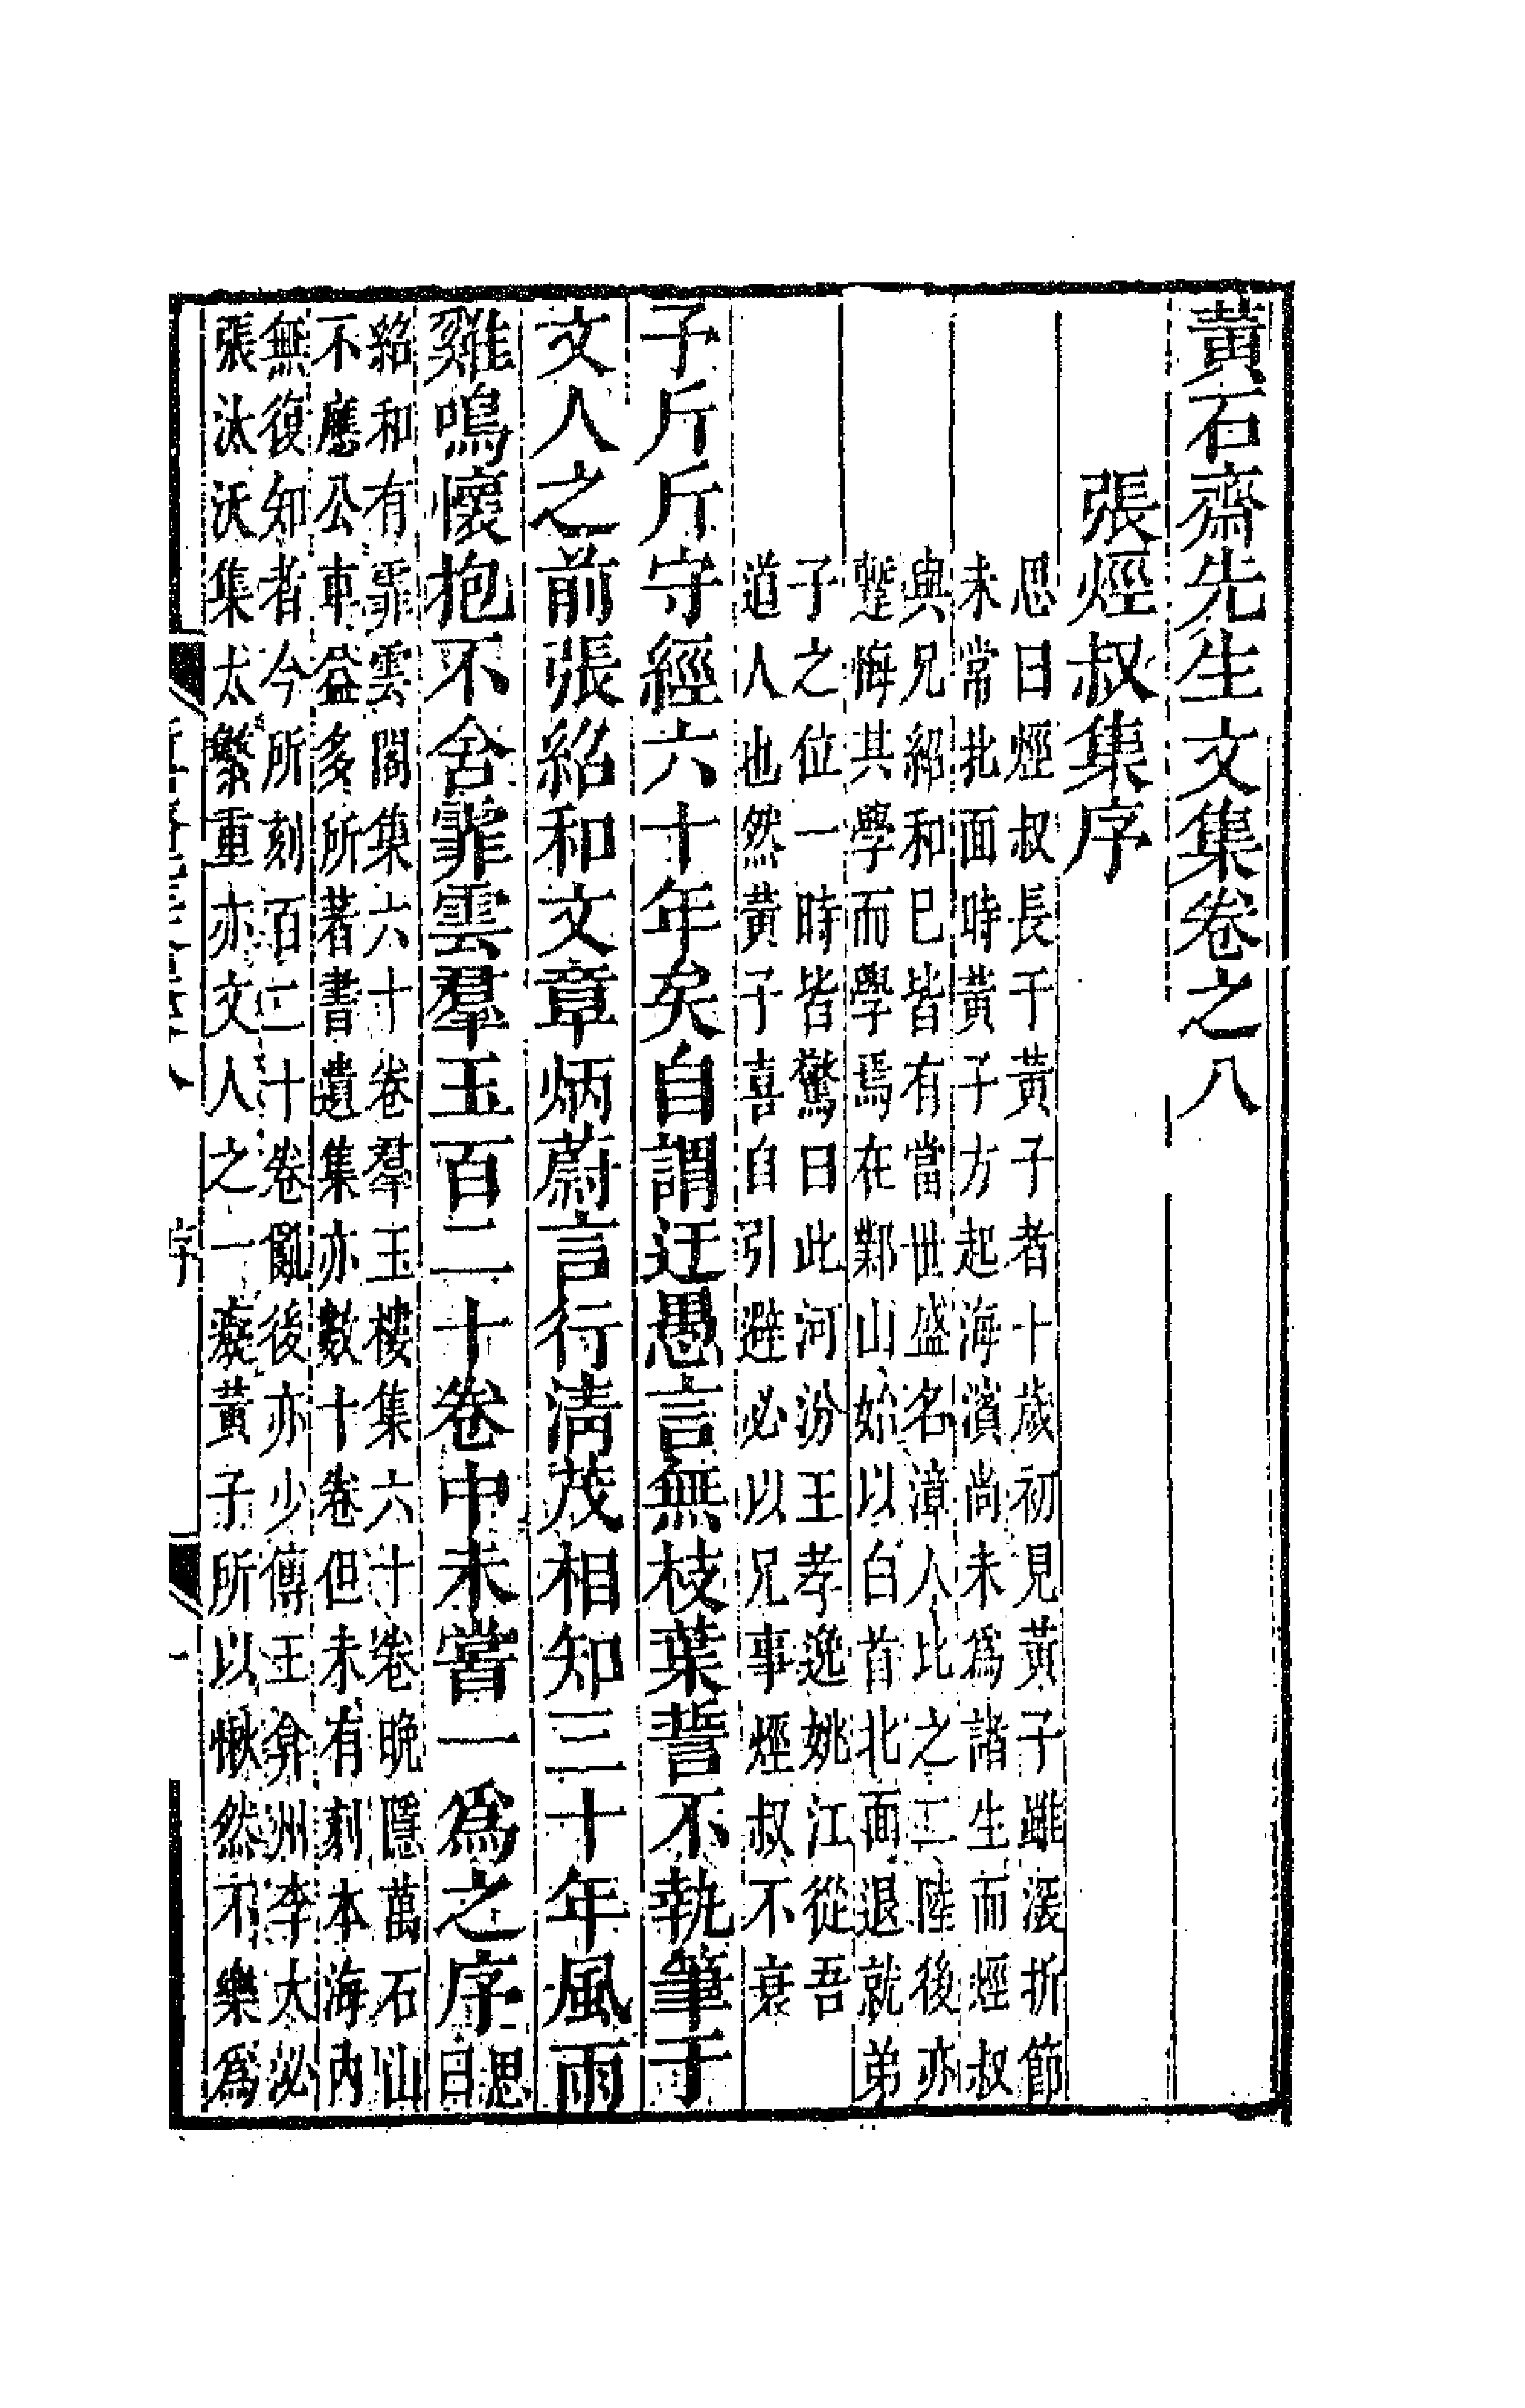 黃石齋先生文集卷之八
張烴叔集序
思曰烴叔長于黃子者十歲初見黃子雖深折節
未常北面時黃子方起海濱尚未為諸生而烴叔
與兄紹和已皆有當世盛名漳人比之二陸後亦
蹔悔其學而學焉在鄴山始以白首北面退就弟
子之位一時皆驚曰此河汾王孝逸姚江從吾
道人也然黃子喜自引避必以兄事烴叔不衰
子斤斤守經六十年矣自謂迂愚言無枝葉誓不執筆于
文人之前張紹和文章炳蔚言行淸茂相知三十年風雨
雞鳴懷抱不舍霏雲羣玉百二十卷中未嘗一為之序思
曰
紹和有霏雲閣集六十卷羣玉樓集六十卷晚隱萬石山
不應公車益多所著書遺集亦數十卷但未有刻本海內
無復知者今所刻百二十卷亂後亦少傳王弇州李大泌
張汰沃集太繁重亦文人之一癡黃子所以愀然不樂為
序
一